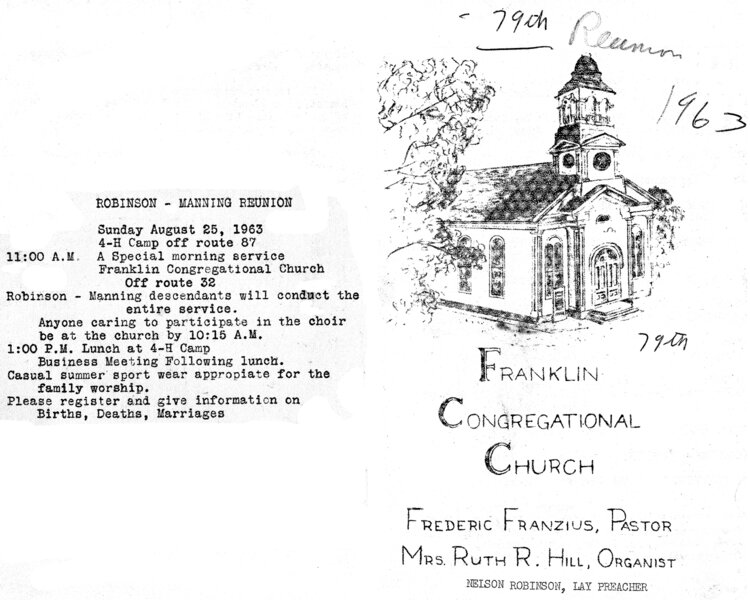 ROBINSON - MANNING REUNION
Sunday August 25, 1963
4-H Camp off route 87
11:00 A.M. A Special morning service
Franklin Congregational Church
Off route 32
Robinson - Manning descendants will conduct the
entire service.
Anyone caring to participate in the choir
be at the church by 10:15 A.M.
1:00 P.M. Lunch at 4-H Camp
Business Meeting Following lunch.
Casual summer sport wear appropiate for the
family worship.
Please register and give information on
Births, Deaths, Marriages
- 79th Reunion
1963
79th
FRANKLIN
CONGREGATIONAL
CHURCH
FREDERIC FRANZIUS, PASTOR
MRS. RUTH R. HILL, ORGANIST
NELSON ROBINSON, LAY PREACHER